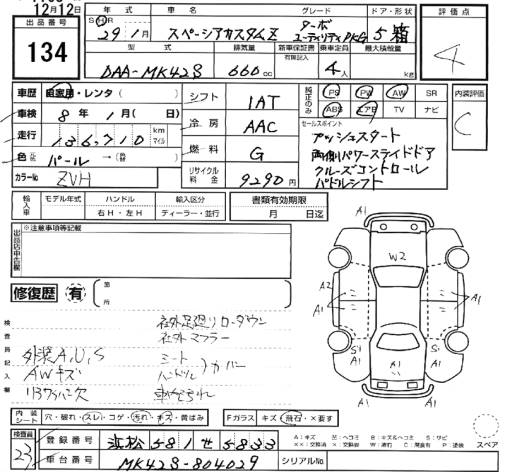 12月12日
出品番号
134
年式 車名 グレード ドア・形状
S・H・R 29年1月 スペーシアカスタムZ ターボ ユーティリティPKG 5 箱
型式 排気量 新車保証書 乗車定員 最大積載量
有限記入
DAA-MK42S 660cc 4人 kg
評価点
4
車歴 自家用・レンタ( )
車検 8年1月( 日)
走行 136,710 km マイル
色 元色 パール →(替)
カラーNo ZVH
シフト 1AT
冷房 AAC
燃料 G
リサイクル料金 9290円
純正のみ
PS PW AW SR
ABS エアB TV ナビ
セールスポイント
プッシュスタート
両側パワースライドドア
クルーズコントロール
パドルシフト
内装評価
C
輸入車 モデル年式 ハンドル 輸入区分
右H・左H ディーラー・並行
書類有効期限
月 日迄
出品店申告欄
※注意事項等記載
修復歴 有
箇所
検査員記入欄
社外足廻り ローダウン
社外マフラー
外装A,U,S
シート
ハンドル
カバー
AWキズ
W2
A1
A1
A2
A1
A1
A1
S
A1
S
A1
A1
内装シート
穴・破れ・スレ・コゲ・汚れ・キズ・黄ばみ
Fガラス キズ・飛石・×要す
スペア
検査員
23
登録番号 浜松 581 せ 5833
車台番号 MK42S-804029 シリアルNo.